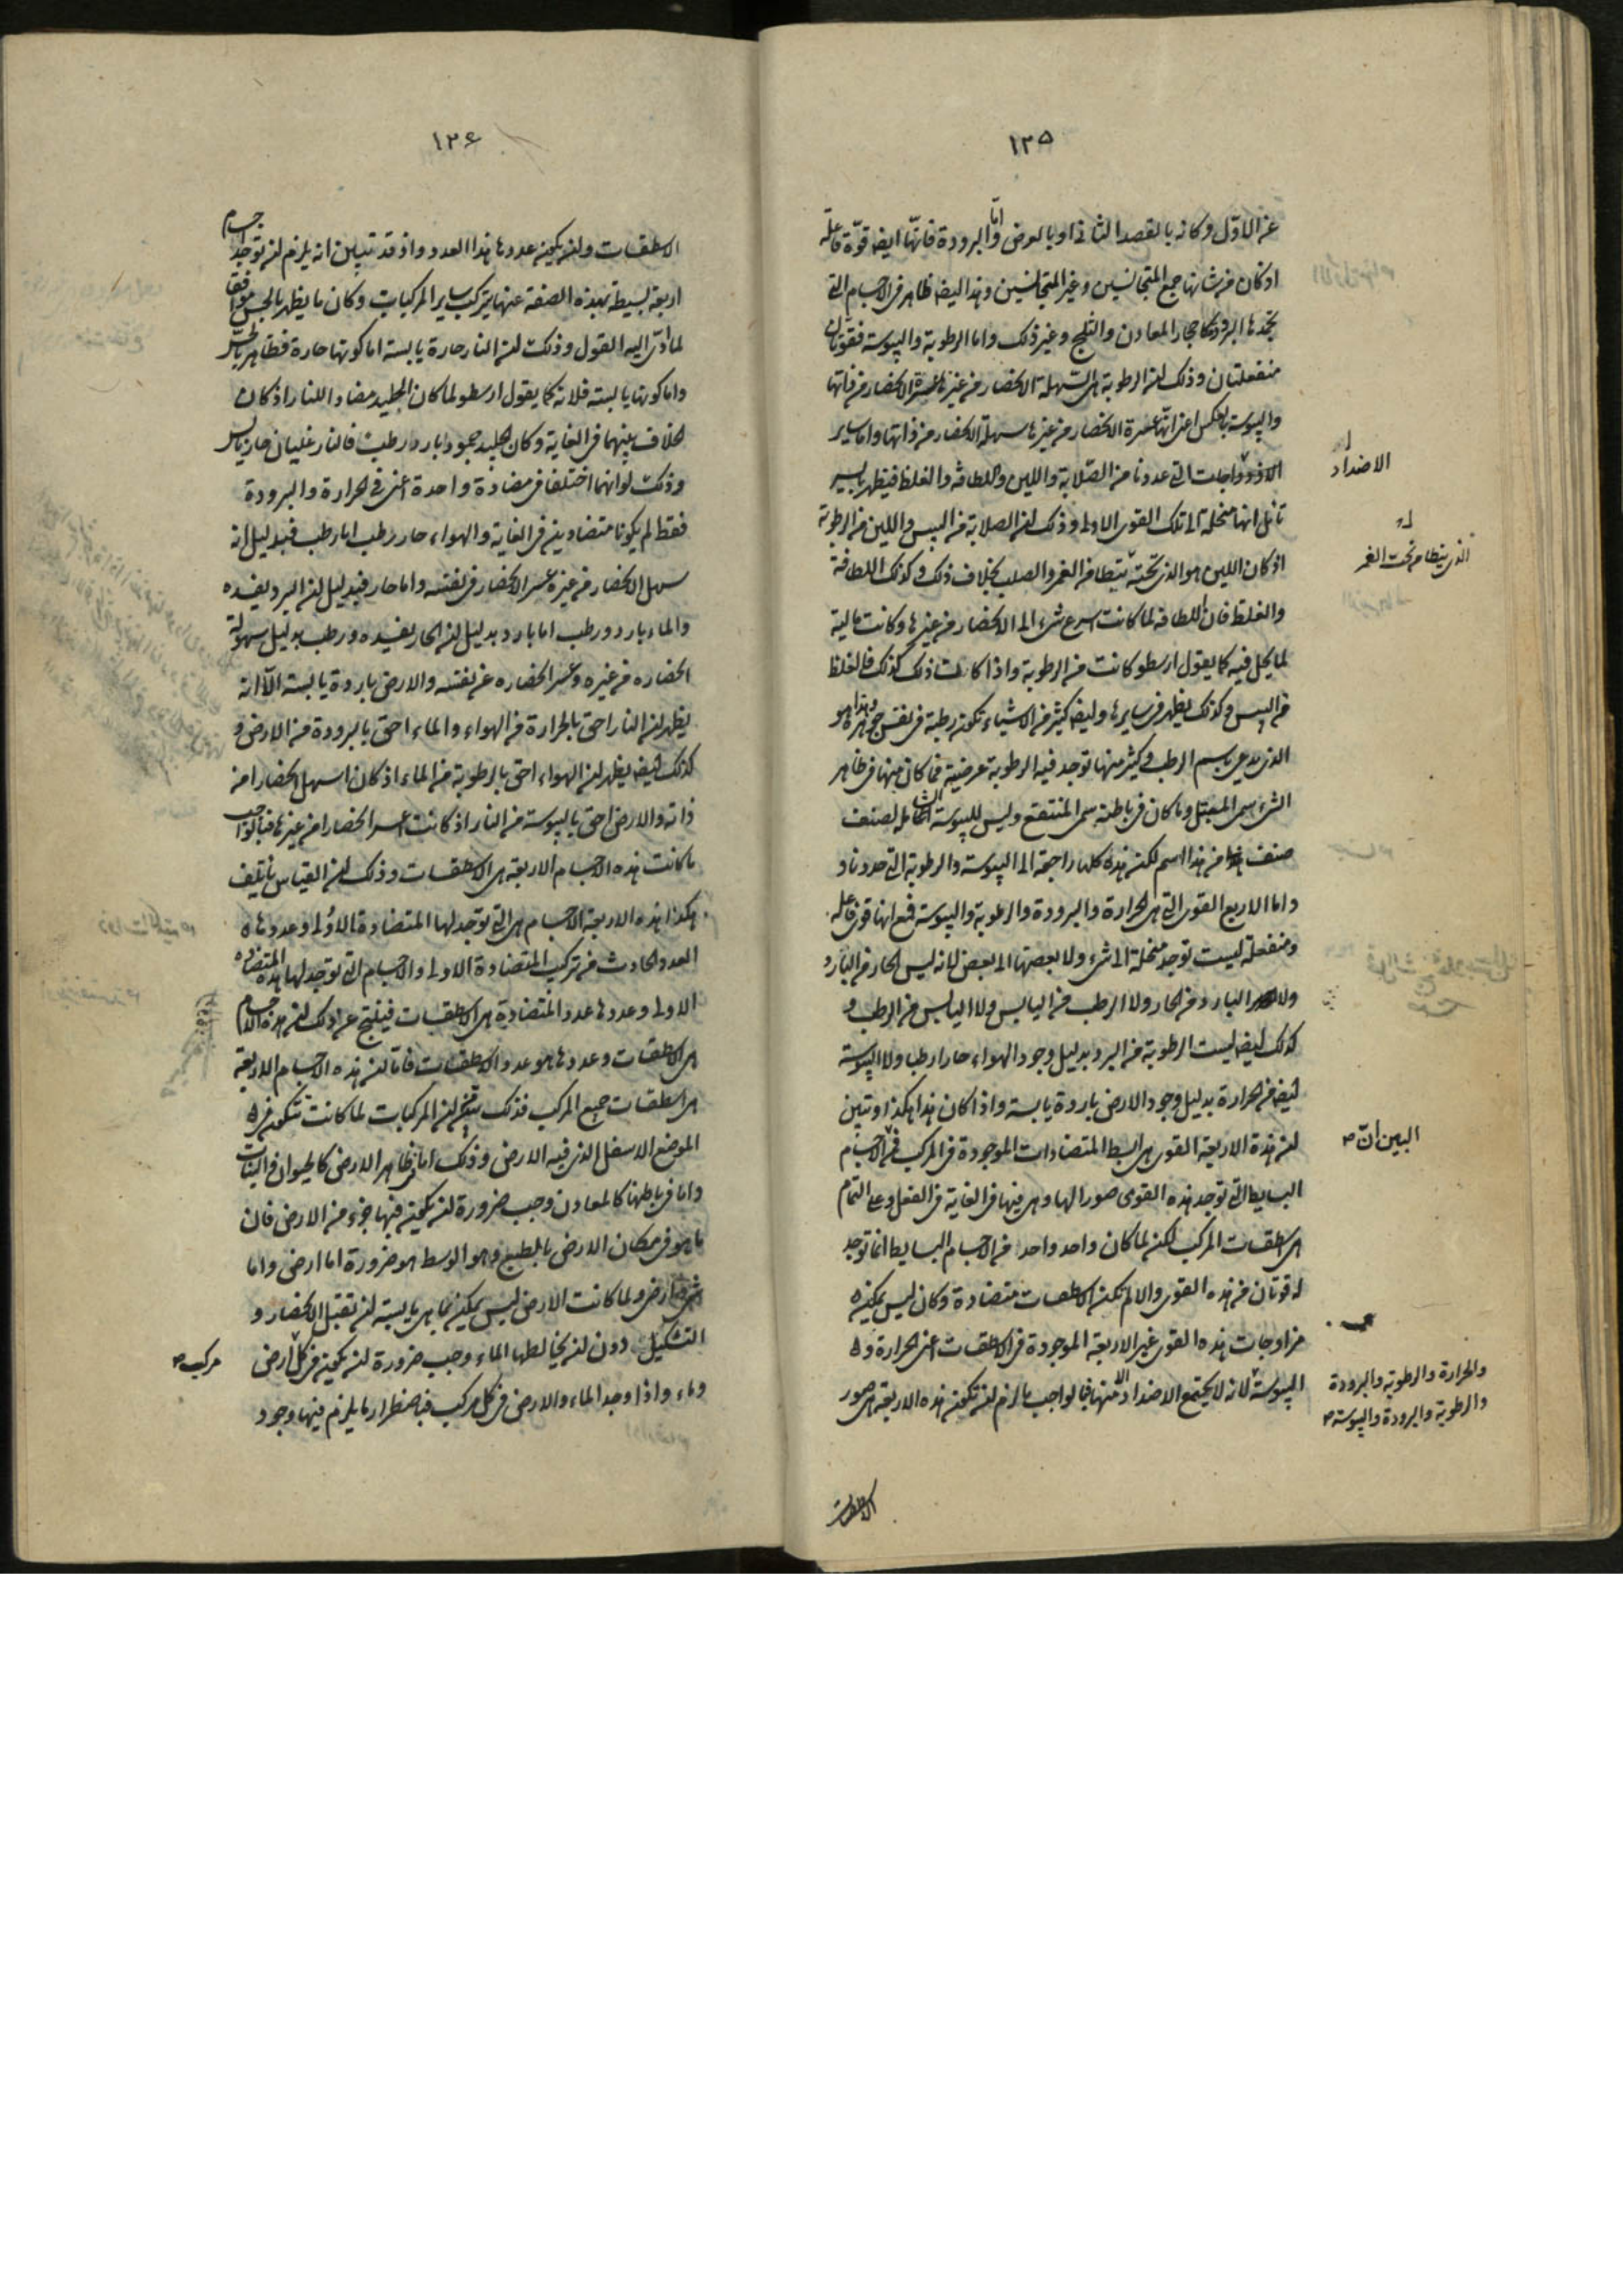 ١٣٥
عن الاول وكانه بالقصد الثانى او بالعرض واما البرودة فانها ايض قوة فاعلة
اذ كان من شانها جمع المتجانسين وغير المتجانسين وهذا ايض ظاهر فى الاجسام التى
تجمدها البرودة كاحجار المعادن والثلج وغير ذلك واما الرطوبة واليبوسة فقوتان
منفعلتان وذلك ان الرطوبة هى السهلة الانحصار من غيرها عسرة الانحصار من ذاتها
واليبوسة بالعكس اعنى انها عسرة الانحصار من غيرها سهلة الانحصار من ذاتها واما ساير
الازدواجات التى عددنا من الصلابة واللين واللطافة والغلظ فيظهر بايسر
تامل انها منحلة الى تلك القوى الاول وذلك ان الصلابة من اليبس واللين من الرطوبة
اذ كان اللين هو الذى تحته يتطامن الغمر والصلب بخلاف ذلك وكذلك اللطافة
والغلظ فان اللطافة لما كانت اسرع شىء الى الانحصار من غيرها وكانت مالية
لما يحل فيه كما يقول ارسطو كانت من الرطوبة واذا كانت ذلك كذلك فالغلظ
من اليبس وكذلك يظهر فى سايرها وايض كثير من الاشياء تكون رطبة فى نفس جوهرها وهذا هو
الذى يدعى باسم الرطب وكثير منها توجد فيه الرطوبة عرضية فما كان منها فى ظاهر
الشىء سمى المبتل وما كان فى باطنه سمى المنتقع وليس لليبوسة المقابلة لصنف
صنف من هذا اسم لكن هذه كلها راجعة الى اليبوسة والرطوبة التى حددنا و
واما الاربع القوى التى هى الحرارة والبرودة والرطوبة واليبوسة فمع انها قوى فاعلة
ومنفعلة ليست توجد منحلة الى شىء ولا بعضها الى بعض لانه ليس الحار من البارد
ولا البارد من الحار ولا الرطب من اليابس ولا اليابس من الرطب و
كذلك ايض ليست الرطوبة من البرد بدليل وجود الهواء حارا رطبا ولا اليبوسة
ايض من الحرارة بدليل وجود الارض باردة يابسة واذا كان هذا هكذا وتبين
ان هذه الاربعة القوى هى ابسط المتضادات الموجودة فى المركب فى الاجسام
البسايط التى توجد هذه القوى صورا لها وهى فيها فى الغاية فى الفعل وعلى التمام
هى اسطقسات المركب لكن لما كان واحد واحد من الاجسام البسايط انما توجد
له قوتان من هذه القوى والا لم تكن الاسطقسات متضادة وكان ليس يمكن
مزاوجات هذه القوى غير الاربعة الموجودة فى الاسطقسات اعنى الحرارة و
اليبوسة لانه لا يجتمع الاضداد منها فبالواجب ما لزم ان تكون هذه الاربعة هى صور
الاسطقسات
الاضداد
الذى يتطامن تحت الغمز
البين ان
والحرارة والرطوبة والبرودة
والرطوبة والبرودة واليبوسة
١٣٦
الاسطقسات وان يكون عددها هذا العدد واذ قد تبين انه يلزم ان توجد اجسام
اربعة بسيطة بهذه الصفة عنها يتركب ساير المركبات وكان ما يظهر بالحس موافقا
لما ادى اليه القول وذلك ان النار حارة يابسة اما كونها حارة فظاهر بالحس
واما كونها يابسة فلانه كما يقول ارسطو لما كان الجليد مضادا للنار اذ كان
الخلاف بينهما فى الغاية وكان الجليد جمود بارد رطب فالنار غليان حار يابس
وذلك لو انهما اختلفا فى مضادة واحدة اعنى فى الحرارة والبرودة
فقط لم يكونا متضادين فى الغاية والهواء حار رطب اما رطب فبدليل انه
سهل الانحصار من غيره عسر الانحصار فى نفسه واما حار فبدليل ان البرد يفسده
والماء بارد ورطب اما بارد بدليل ان الحار يفسده ورطب بدليل سهولة
انحصاره من غيره وعسر انحصاره عن نفسه والارض باردة يابسة الا انه
يظهر ان النار احق بالحرارة من الهواء والماء احق بالبرودة من الارض و
كذلك ايض يظهر ان الهواء احق بالرطوبة من الماء اذ كان اسهل انحصارا من
ذاته والارض احق باليبوسة من النار اذ كانت اعسر انحصارا من غيرها فبالواجب
ما كانت هذه الاجسام الاربعة هى الاسطقسات وذلك ان القياس يأتلف
هكذا هذه الاربعة الاجسام هى التى توجد لها المتضادة الاول وعددها
العدد الحادث من تركيب المتضادة الاول والاجسام التى توجد لها هذه المتضادة
الاول وعددها عدد المتضادة هى الاسطقسات فينتج عن ذلك ان هذه الاجسام
هى الاسطقسات وعددها هو عدد الاسطقسات فاما ان هذه الاجسام الاربعة
هى اسطقسات جميع المركب فذلك يتبين ان المركبات لما كانت تتكون فى
الموضع الاسفل الذى فيه الارض وذلك اما فى ظاهر الارض كالحيوان والنبات
واما فى باطنها كالمعادن وجب ضرورة ان يكون فيها جزء من الارض فان
ما هو فى مكان الارض بالطبع وهو الوسط هو ضرورة اما ارض واما
ارض ولما كانت الارض ليس يمكن بما هى يابسة ان تقبل الانحصار و
التشكيل دون ان يخالطها الماء وجب ضرورة ان يكون فى كل ارض
وماء واذا وجد الماء والارض فى كل مركب فباضطرار ما يلزم فيها وجود
مركب